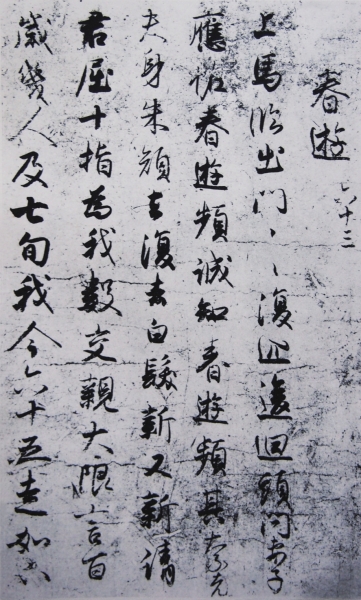 春遊 六十三
上馬臨出門〻〻復巡逡迴頭問妻子
應恠春遊頻誠知春遊頻其奈老
大身朱顏去復去白髮新又新請
君屈十指為我數交親大限言百
歲幾人及七旬我今六十五走如下